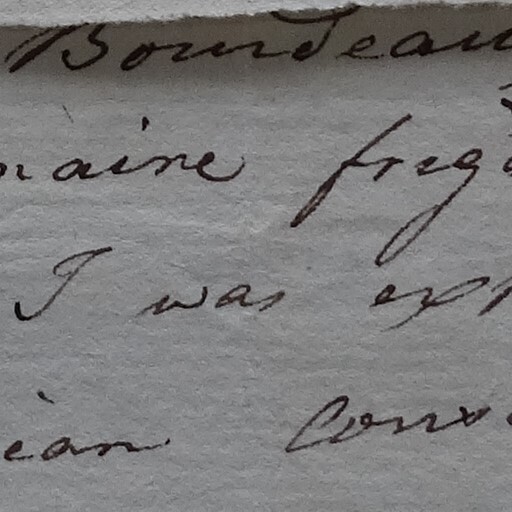 Bourdeau
naire frig
I was exp
ean cons